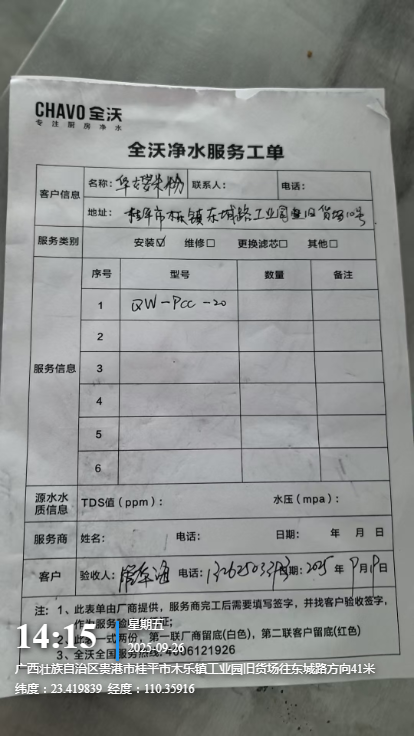 CHAVO 全沃
专注厨房净水
全沃净水服务工单
客户信息 名称: 联系人: 电话:
地址: 桂平市木乐镇东城路工业园 旧货场10号
服务类别 安装☑ 维修☐ 更换滤芯☐ 其他☐
服务信息 序号 型号 数量 备注
1 QW-PCC-20
2
3
4
5
6
源水水质信息 TDS值（ppm）: 水压（mpa）:
服务商 姓名: 电话: 日期: 年 月 日
客户 验收人: 电话: 日期: 2025 年 9月 日
注: 1、此表单由厂商提供，服务商完工后需要填写签字，并找客户验收签字，
作为服务验
2、此 一式两份，第一联厂商留底(白色)，第二联客户留底(红色)
3、全沃全国服务热线: 4006121926
14:15 星期五
2025-09-26
广西壮族自治区贵港市桂平市木乐镇工业园旧货场往东城路方向41米
纬度：23.419839 经度：110.35916